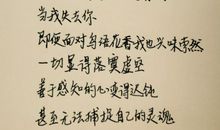 当我失去你
即便面对鸟语花香我也兴味索然
一切显得落寞虚空
善于感知的心变得迟钝
甚至无法捕捉自己的灵魂